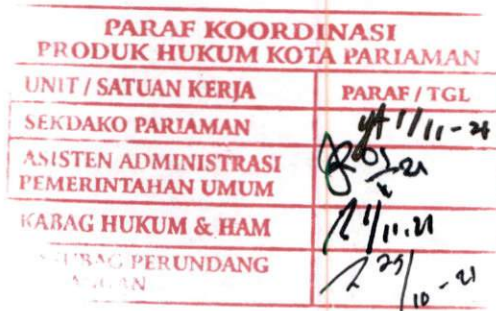 PARAF KOORDINASI
PRODUK HUKUM KOTA PARIAMAN
UNIT / SATUAN KERJA PARAF / TGL
SEKDAKO PARIAMAN 1/11-21
ASISTEN ADMINISTRASI
PEMERINTAHAN UMUM
KABAG HUKUM & HAM 1/11.21
PERUNDANG 29/10-21